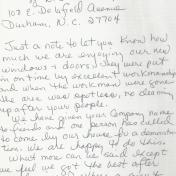 107 E. Delafield Avenue
Durham, N.C. 27704
Just a note to let you know how
much we are enjoying our new
windows & doors. They were put
in on time by excellent workmanship
and when the workmen were gone
the area was spotless, no cleaning
up after your people.
We have given your company name
to friends and one person has called
to come by our house for a demonstra
tion. We are happy to do this.
What more can be said except
we feel we got the best after